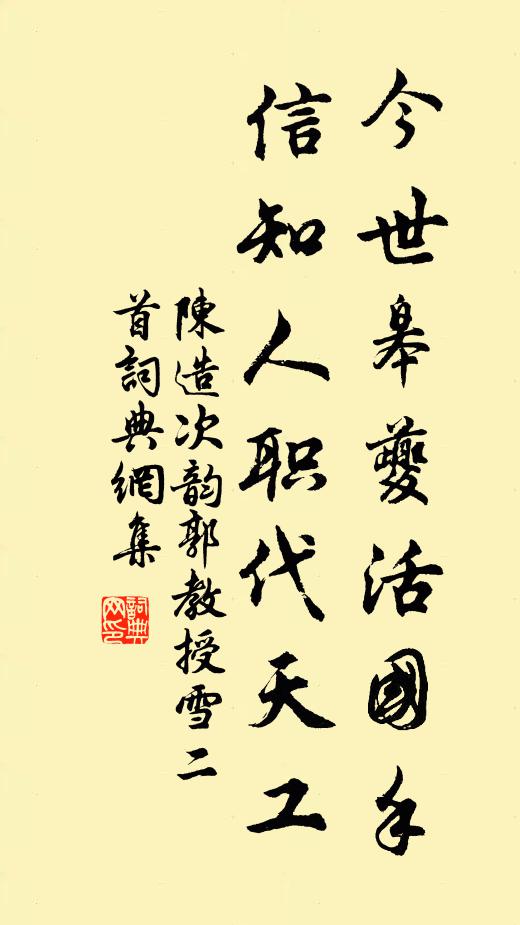 今世皋夔活國手
信知人职代天工
陳造次韵郭教授雪二
首詞典網集
詞典
网印